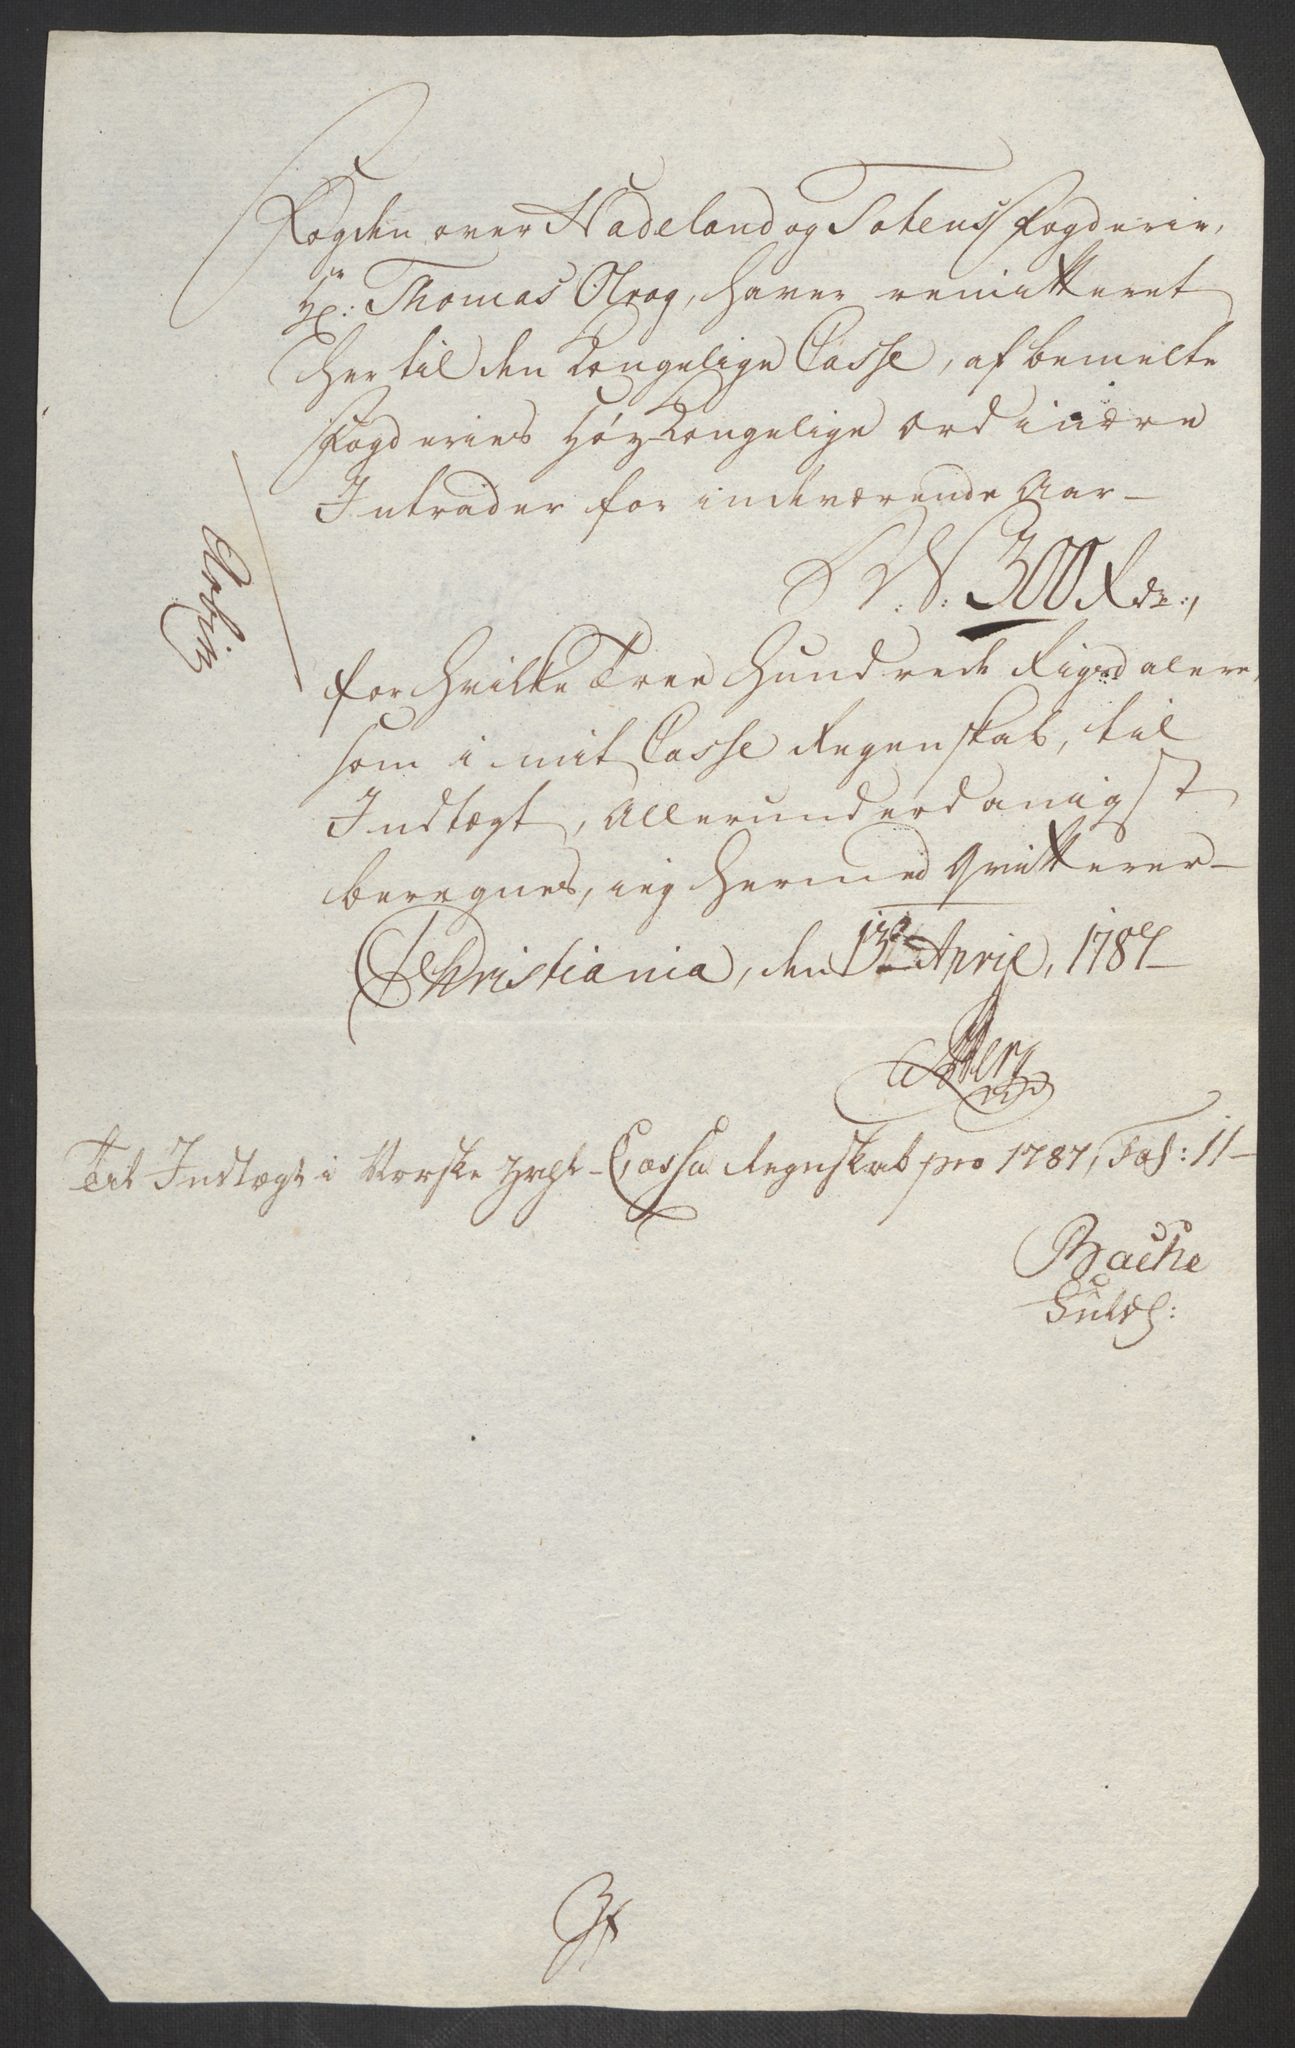 Fogden over Hadeland og Totens Fogderie,
Hr: Thomas Olrog, haver remitteret
her til den Kongelige Casse, af bemelte
Fogderies Høy Kongelige Ordinære
Intrader for indeværende Aar –
300 Rdr:,
for hvilke Tree Hundrede Rigsdalere,
som i mit Casse Regenskab, til
Indtægt, Allerunderdanigst
beregnes, ieg hermed Qvitterer –
Christiania, den 13de April, 1787 –
Til Indtægt i Norske Cassa Regnskab pro 1787, Fol: 11 –
Bache